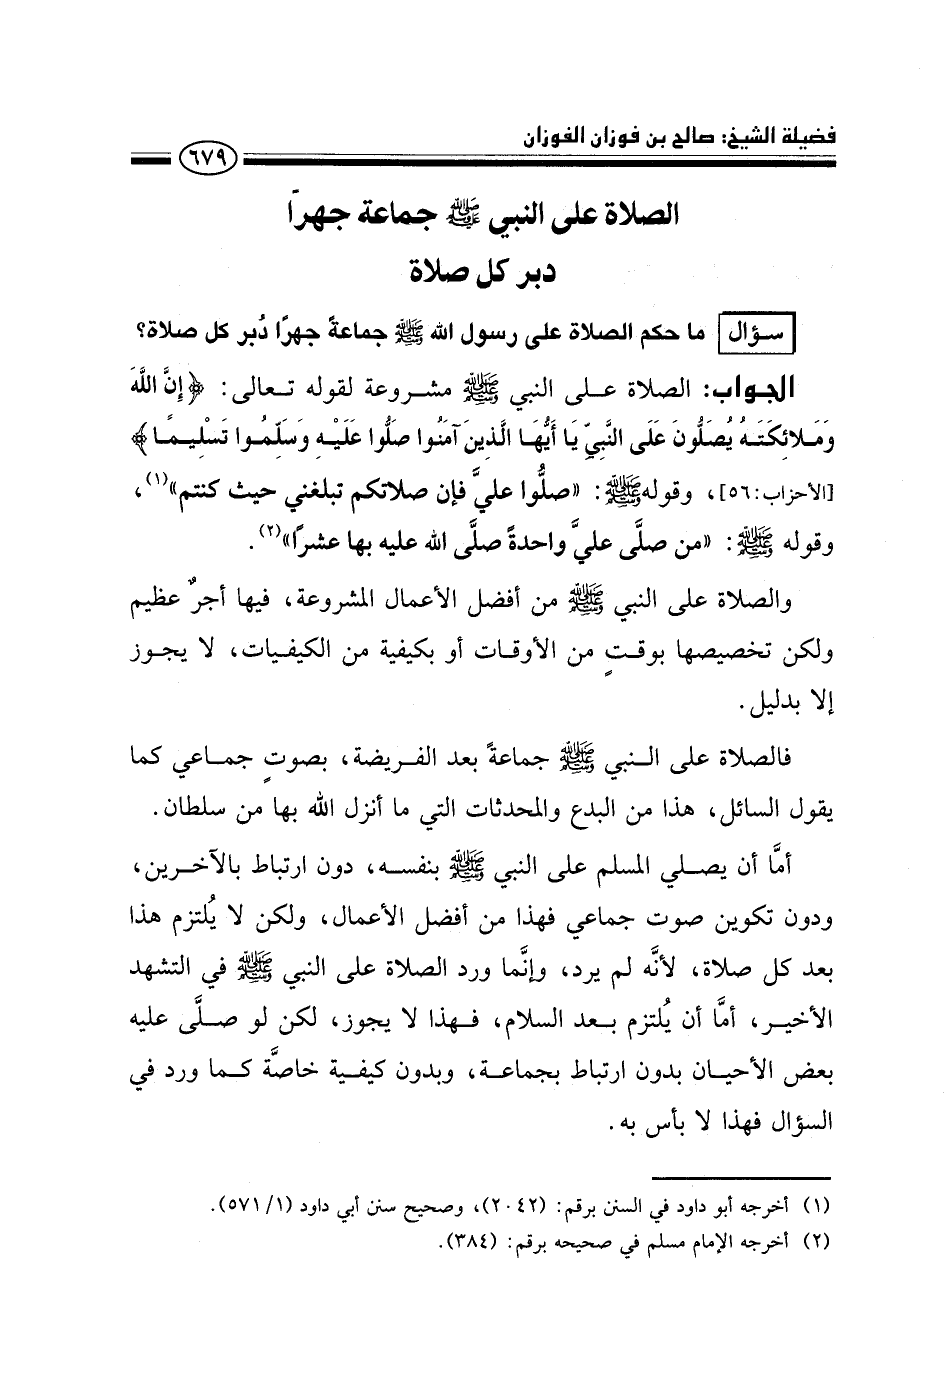 فضيلة الشيخ: صالح بن فوزان الفوزان
٦٧٩
الصلاة على النبي ﷺ جماعة جهرًا
دبر كل صلاة
سؤال ما حكم الصلاة على رسول الله ﷺ جماعةً جهرًا دُبر كل صلاة؟
الجواب: الصلاة على النبي ﷺ مشروعة لقوله تعالى: ﴿إِنَّ اللَّهَ
وَمَلائِكَتَهُ يُصَلُّونَ عَلَى النَّبِيِّ يَا أَيُّهَا الَّذِينَ آمَنُوا صَلُّوا عَلَيْهِ وَسَلِّمُوا تَسْلِيمًا﴾
[الأحزاب:٥٦]، وقوله ﷺ: «صلُّوا عليَّ فإن صلاتكم تبلغني حيث كنتم»(١)،
وقوله ﷺ: «من صلَّى عليَّ واحدةً صلَّى الله عليه بها عشرًا»(٢).
والصلاة على النبي ﷺ من أفضل الأعمال المشروعة، فيها أجرٌ عظيم
ولكن تخصيصها بوقتٍ من الأوقات أو بكيفية من الكيفيات، لا يجوز
إلا بدليل.
فالصلاة على النبي ﷺ جماعةً بعد الفريضة، بصوتٍ جماعي كما
يقول السائل، هذا من البدع والمحدثات التي ما أنزل الله بها من سلطان.
أمَّا أن يصلي المسلم على النبي ﷺ بنفسه، دون ارتباط بالآخرين،
ودون تكوين صوت جماعي فهذا من أفضل الأعمال، ولكن لا يُلتزم هذا
بعد كل صلاة، لأنَّه لم يرد، وإنَّما ورد الصلاة على النبي ﷺ في التشهد
الأخير، أمَّا أن يُلتزم بعد السلام، فهذا لا يجوز، لكن لو صلَّى عليه
بعض الأحيان بدون ارتباط بجماعة، وبدون كيفية خاصَّة كما ورد في
السؤال فهذا لا بأس به.
(١) أخرجه أبو داود في السنن برقم: (٢٠٤٢)، وصحيح سنن أبي داود (١/ ٥٧١).
(٢) أخرجه الإمام مسلم في صحيحه برقم: (٣٨٤).